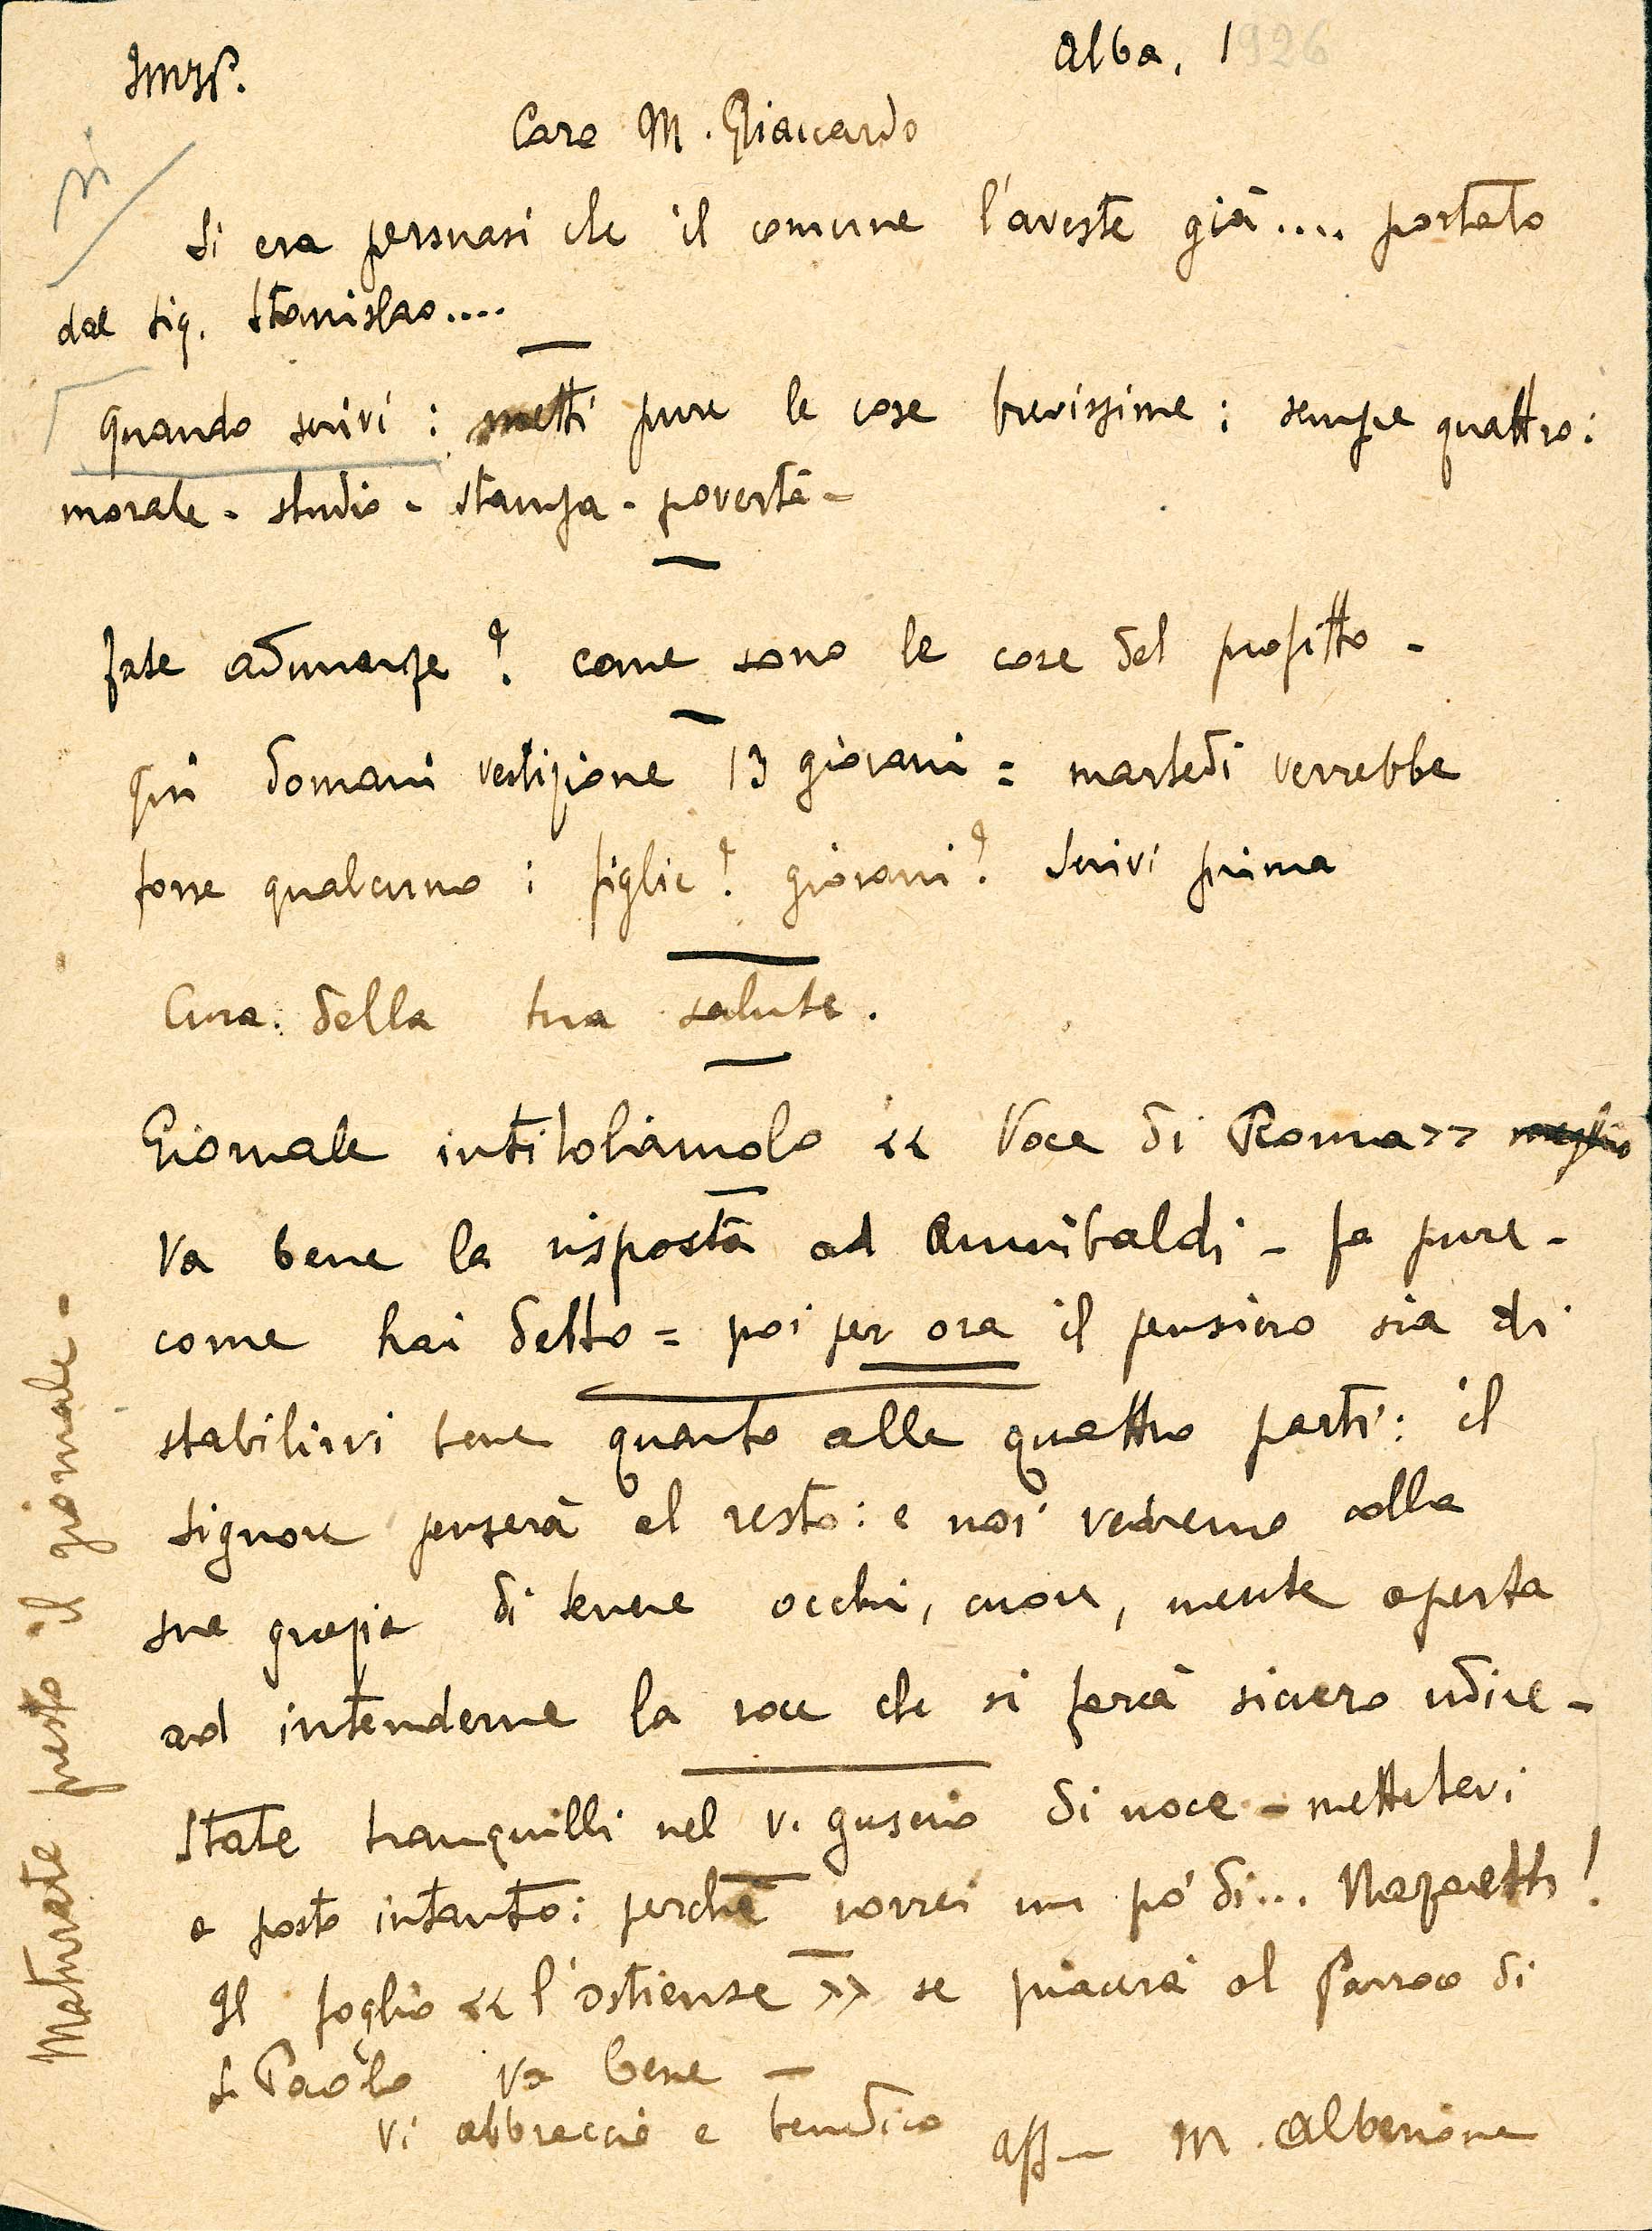 Alba, 1926
Caro M. Giaccardo
Si era persuasi che il comune l'aveste già.... portato
dal Sig. Stanislao....
Quando scrivi: metti pure le cose brevissime: sempre quattro:
morale - studio - stampa - povertà -
Fate adunanze? come sono le cose del profitto -
Qui domani vestizione 13 giovani = martedì verrebbe
forse qualcuno: figlie? giovani? Scrivi prima
Cura della tua salute.
Giornale intitoliamolo « Voce di Roma»
Va bene la risposta ad Annibaldi - fa pure -
come hai detto = poi per ora il pensiero sia di
stabilirvi bene quanto alle quattro parti: il
Signore penserà al resto: e noi vedremo colla
sua grazia di tenere occhi, cuore, mente aperta
ad intenderne la voce che si farà sicuro udire -
State tranquilli nel v. guscio di noce - mettetevi
a posto intanto: perchè vorrei un pò di... Nazareth!
Il foglio « l'Ostiense » se piacerà al Parroco di
S. Paolo va bene -
Vi abbraccio e benedico aff M. Alberione
Maturate presto il giornale -